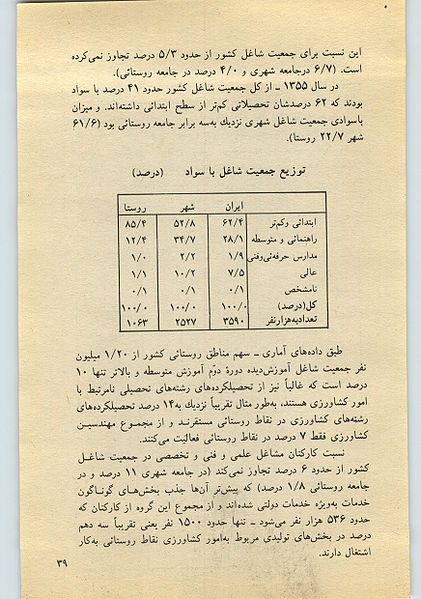 این نسبت برای جمعیت شاغل کشور از حدود ۵/۳ درصد تجاوز نمی‌کرده
است. (۶/۷ درجامعه شهری و ۴/۰ درصد در جامعه روستائی).
در سال ۱۳۵۵ ـ از کل جمعیت شاغل کشور حدود ۴۱ درصد با سواد
بودند که ۶۲ درصدشان تحصیلاتی کم‌تر از سطح ابتدائی داشته‌اند. و میزان
باسوادی جمعیت شاغل شهری نزدیك به‌سه برابر جامعه روستائی بود (۶۱/۶
شهر ۲۲/۷ روستا).
توزیع جمعیت شاغل با سواد (درصد)
ایران شهر روستا
ابتدائی وکم‌تر ۶۲/۴ ۵۲/۸ ۸۵/۴
راهنمائی و متوسطه ۲۸/۱ ۳۴/۷ ۱۲/۴
مدارس حرفه‌ئی‌وفنی ۱/۹ ۲/۲ ۱/۰
عالی ۷/۵ ۱۰/۲ ۱/۱
نامشخص ۰/۱ ۰/۱ ۰/۱
کل(درصد) ۱۰۰/۰ ۱۰۰/۰ ۱۰۰/۰
تعدادبه‌هزارنفر ۳۵۹۰ ۲۵۲۷ ۱۰۶۳
طبق داده‌های آماری ـ سهم مناطق روستائی کشور از ۱/۲۰ میلیون
نفر جمعیت شاغل آموزش‌دیده دورهٔ دوّم آموزش متوسطه و بالاتر تنها ۱۰
درصد است که غالباً نیز از تحصیلکرده‌های رشته‌های تحصیلی نامرتبط با
امور کشاورزی هستند، به‌طور مثال تقریباً نزدیك به‌۱۴ درصد تحصیلکرده‌های
رشته‌های کشاورزی در نقاط روستائی مستقرنـد و از مجمـوع مهندسیـن
کشاورزی فقط ۷ درصد در نقاط روستائی فعالیت می‌کنند.
نسبت کارکنان مشاغل علمی و فنی و تخصصی در جمعیت شاغـل
کشور از حدود ۶ درصد تجاوز نمی‌کند (در جامعه شهری ۱۱ درصد و در
جامعه روستائی ۱/۸ درصد) که پیش‌تر آن‌ها جذب بخش‌هـای گونـاگون
خدمات به‌ویژه خدمات دولتی شده‌اند و از مجموع این گروه از کارکنان که
حدود ۵۳۶ هزار نفر می‌شود ـ تنها حدود ۱۵۰۰ نفر یعنی تقریباً سه دهم
درصد در بخش‌های تولیدی مربوط به‌امور کشاورزی نقاط روستائی به‌کار
اشتغال دارند.
۳۹